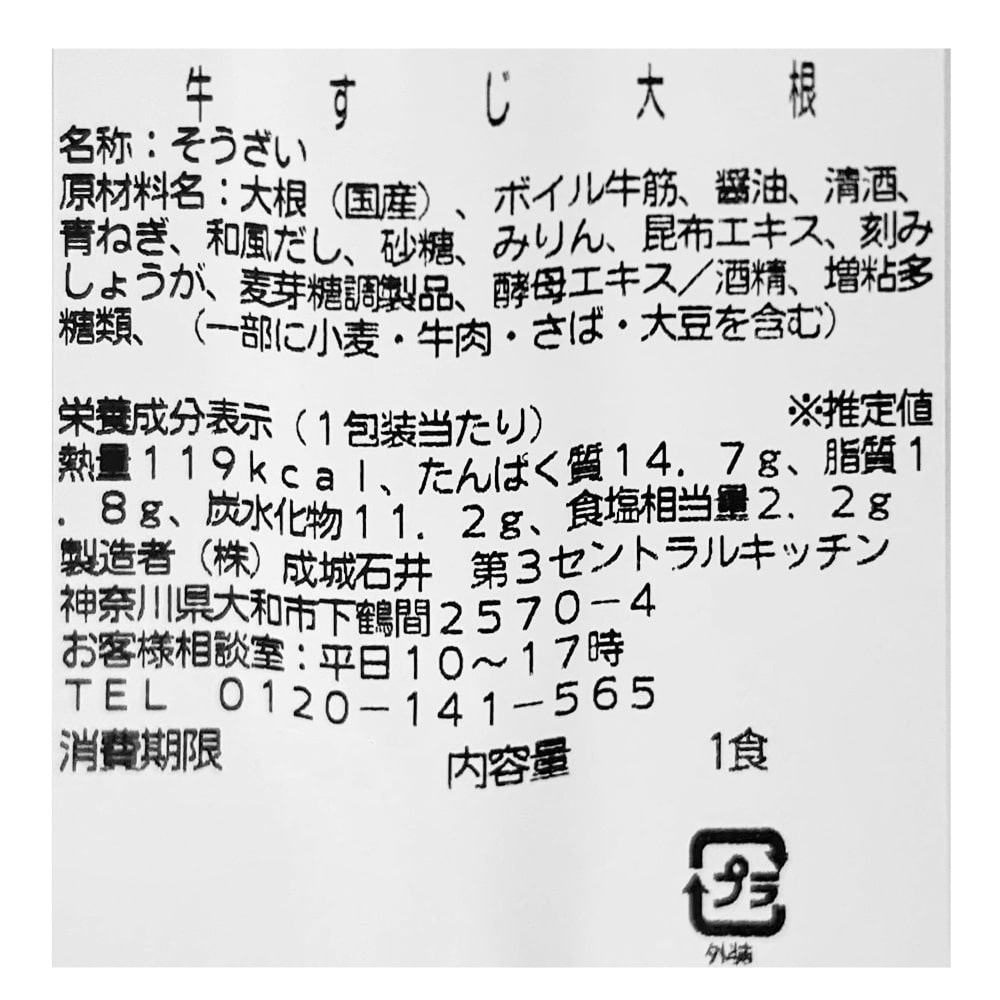 牛すじ大根
名称：そうざい
原材料名：大根（国産）、ボイル牛筋、醤油、清酒、
青ねぎ、和風だし、砂糖、みりん、昆布エキス、刻み
しょうが、麦芽糖調製品、酵母エキス／酒精、増粘多
糖類、（一部に小麦・牛肉・さば・大豆を含む）
栄養成分表示（１包装当たり） ※推定値
熱量１１９ｋｃａｌ、たんぱく質１４．７ｇ、脂質１
．８ｇ、炭水化物１１．２ｇ、食塩相当量２．２ｇ
製造者（株）成城石井　第３セントラルキッチン
神奈川県大和市下鶴間２５７０－４
お客様相談室：平日１０～１７時
ＴＥＬ　０１２０－１４１－５６５
消費期限 内容量 1食
プラ
外装